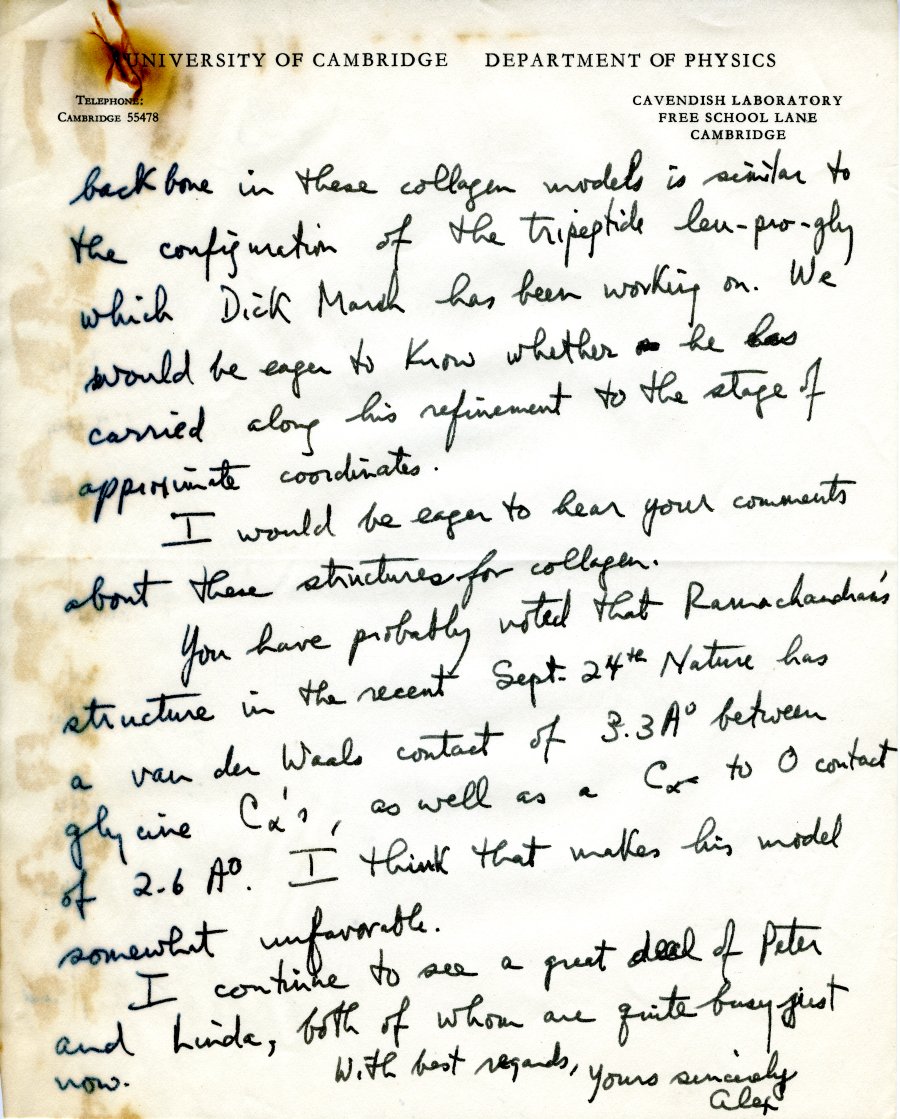 UNIVERSITY OF CAMBRIDGE DEPARTMENT OF PHYSICS
TELEPHONE:
CAMBRIDGE 55478
CAVENDISH LABORATORY
FREE SCHOOL LANE
CAMBRIDGE
backbone in these collagen models is similar to
the configuration of the tripeptide leu-pro-gly
which Dick Marsh has been working on. We
would be eager to know whether he has
carried along his refinement to the stage of
approximate coordinates.
I would be eager to hear your comments
about these structures for collagen.
You have probably noted that Ramachandran's
structure in the recent Sept. 24th Nature has
a van der Waals contact of 3.3A° between
glycine Cα's, as well as a Cα to O contact
of 2.6 A°. I think that makes his model
somewhat unfavorable.
I continue to see a great deal of Peter
and Linda, both of whom are quite busy just
now.
With best regards,
Yours sincerely
Alex